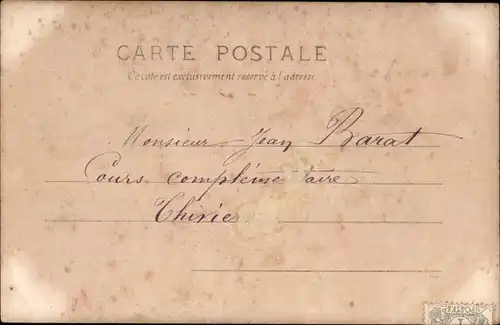 CARTE POSTALE
Ce côté est exclusivement réservé à l'adresse
Monsieur Jean Barat
Cours complémentaire
Thirié
POSTES
1